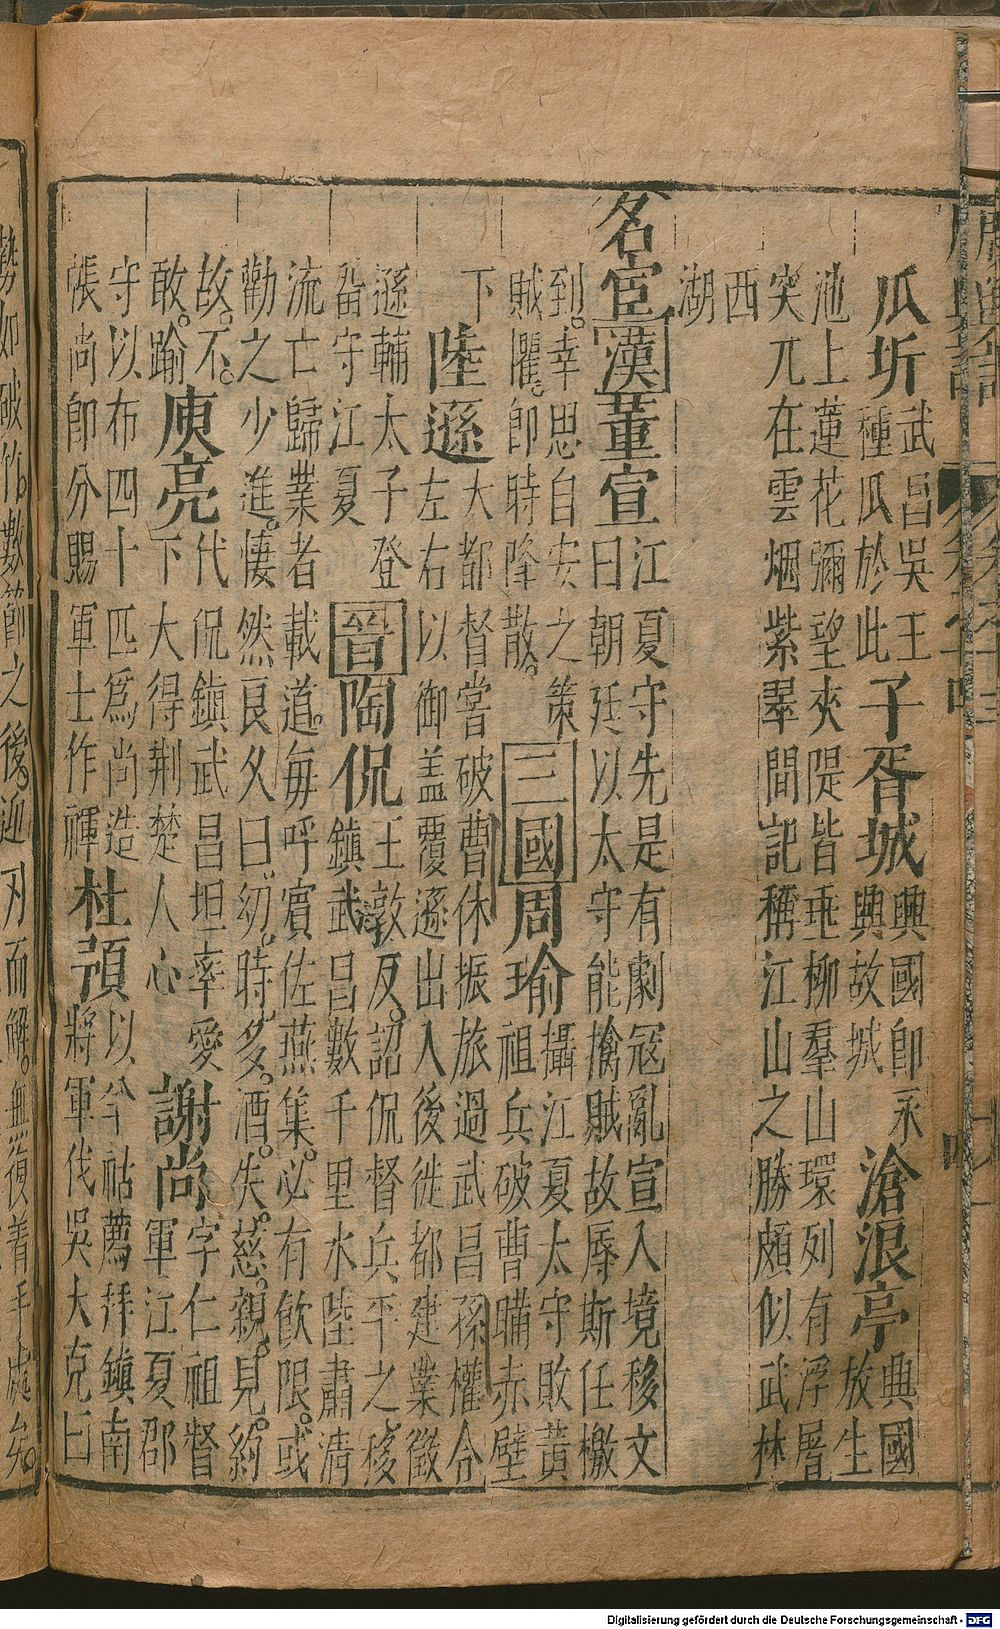 瓜圻武昌吳王種瓜於此子胥城興國即永興故城滄浪亭興國放生
池上蓮花彌望夾隄皆垂柳羣山環列有浮屠
突兀在雲烟紫翠間記稱江山之勝頗似武林
西
湖
名宦漢董宣江夏守先是有劇寇亂宣入境移文
曰朝廷以太守能擒賊故辱斯任檄
到幸思自安之策
賊懼。即時降散。三國周瑜攝江夏太守敗黃
祖兵破曹瞞赤壁
下陸遜大都督嘗破曹休振旅過武昌孫權令
左右以御盖覆遜出入後徙都建業徵
遜輔太子登
畱守江夏晉陶侃王敦反詔侃督兵平之移
鎮武昌數千里水陸肅清
流亡歸業者載道。每呼賔佐燕集。必有飲限。或
勸之少進。悽然良久曰幼。時。多。酒。失。慈。親。見。約
故。不。
敢踰庾亮代侃鎮武昌坦率愛
下大得荆楚人心謝尚字仁祖督
軍江夏郡
守以布四十匹爲尚造
帳尚即分賜軍士作褌杜預以羊祜薦拜鎮南
將軍伐吳大克曰
勢如破竹數節之後迎刃而解。無復着手處矣。
Digitalisierung gefördert durch die Deutsche Forschungsgemeinschaft - DFG